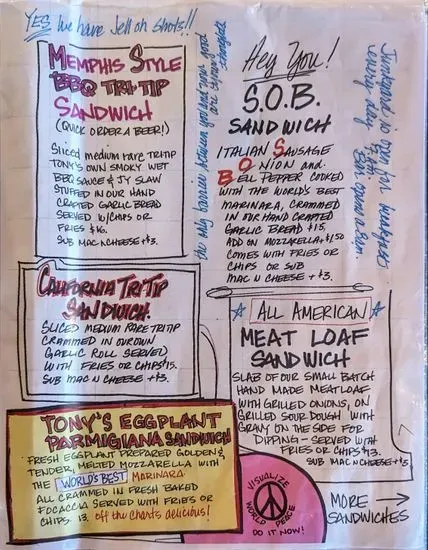 YES we have Jell oh shots!!
MEMPHIS STYLE
BBQ TRI-TIP
SANDWICH
(QUICK ORDER A BEER!)
Sliced medium rare TRITIP
TONY'S OWN SMOKY WET
BBQ SAUCE & JY SLAW
STUFFED IN OUR HAND
CRAFTED GARLIC BREAD
SERVED W/CHIPS OR
FRIES $16.
SUB MAC N CHEESE +$3.
the only barrier between you and your good
are
Hey You!
S.O.B.
SANDWICH
ITALIAN SAUSAGE
ONION and
BELL PEPPER COOKED
WITH THE WORLD'S BEST
MARINARA, CRAMMED
IN OUR HAND CRAFTED
GARLIC BREAD $15.
ADD ON MOZZARELLA +$1.50
COMES WITH FRIES OR
CHIPS OR SUB
MAC N CHEESE + $3.
is open for
every day
Bar open
CALIFORNIA TRI TIP
SANDWICH
SLICED MEDIUM RARE TRITIP
CRAMMED IN OUR OWN
GARLIC ROLL SERVED
WITH FRIES OR CHIPS $15.
SUB MAC N CHEESE +$3.
ALL AMERICAN
MEAT LOAF
SANDWICH
SLAB OF OUR SMALL BATCH
HAND MADE MEATLOAF
WITH GRILLED ONIONS, ON
GRILLED SOUR DOUGH WITH
GRAVY ON THE SIDE FOR
DIPPING - SERVED WITH
FRIES OR CHIPS $13.
SUB MAC N CHEESE +$3
TONY'S EGGPLANT
PARMIGIANA SANDWICH
FRESH EGGPLANT PREPARED GOLDEN &
TENDER, MELTED MOZZARELLA WITH
the WORLD'S BEST MARINARA
ALL CRAMMED IN FRESH BAKED
FOCACCIA SERVED WITH FRIES OR
CHIPS. 13. off the charts delicious!
VISUALIZE
WORLD PEACE
DO IT NOW!
MORE →
SANDWICHES